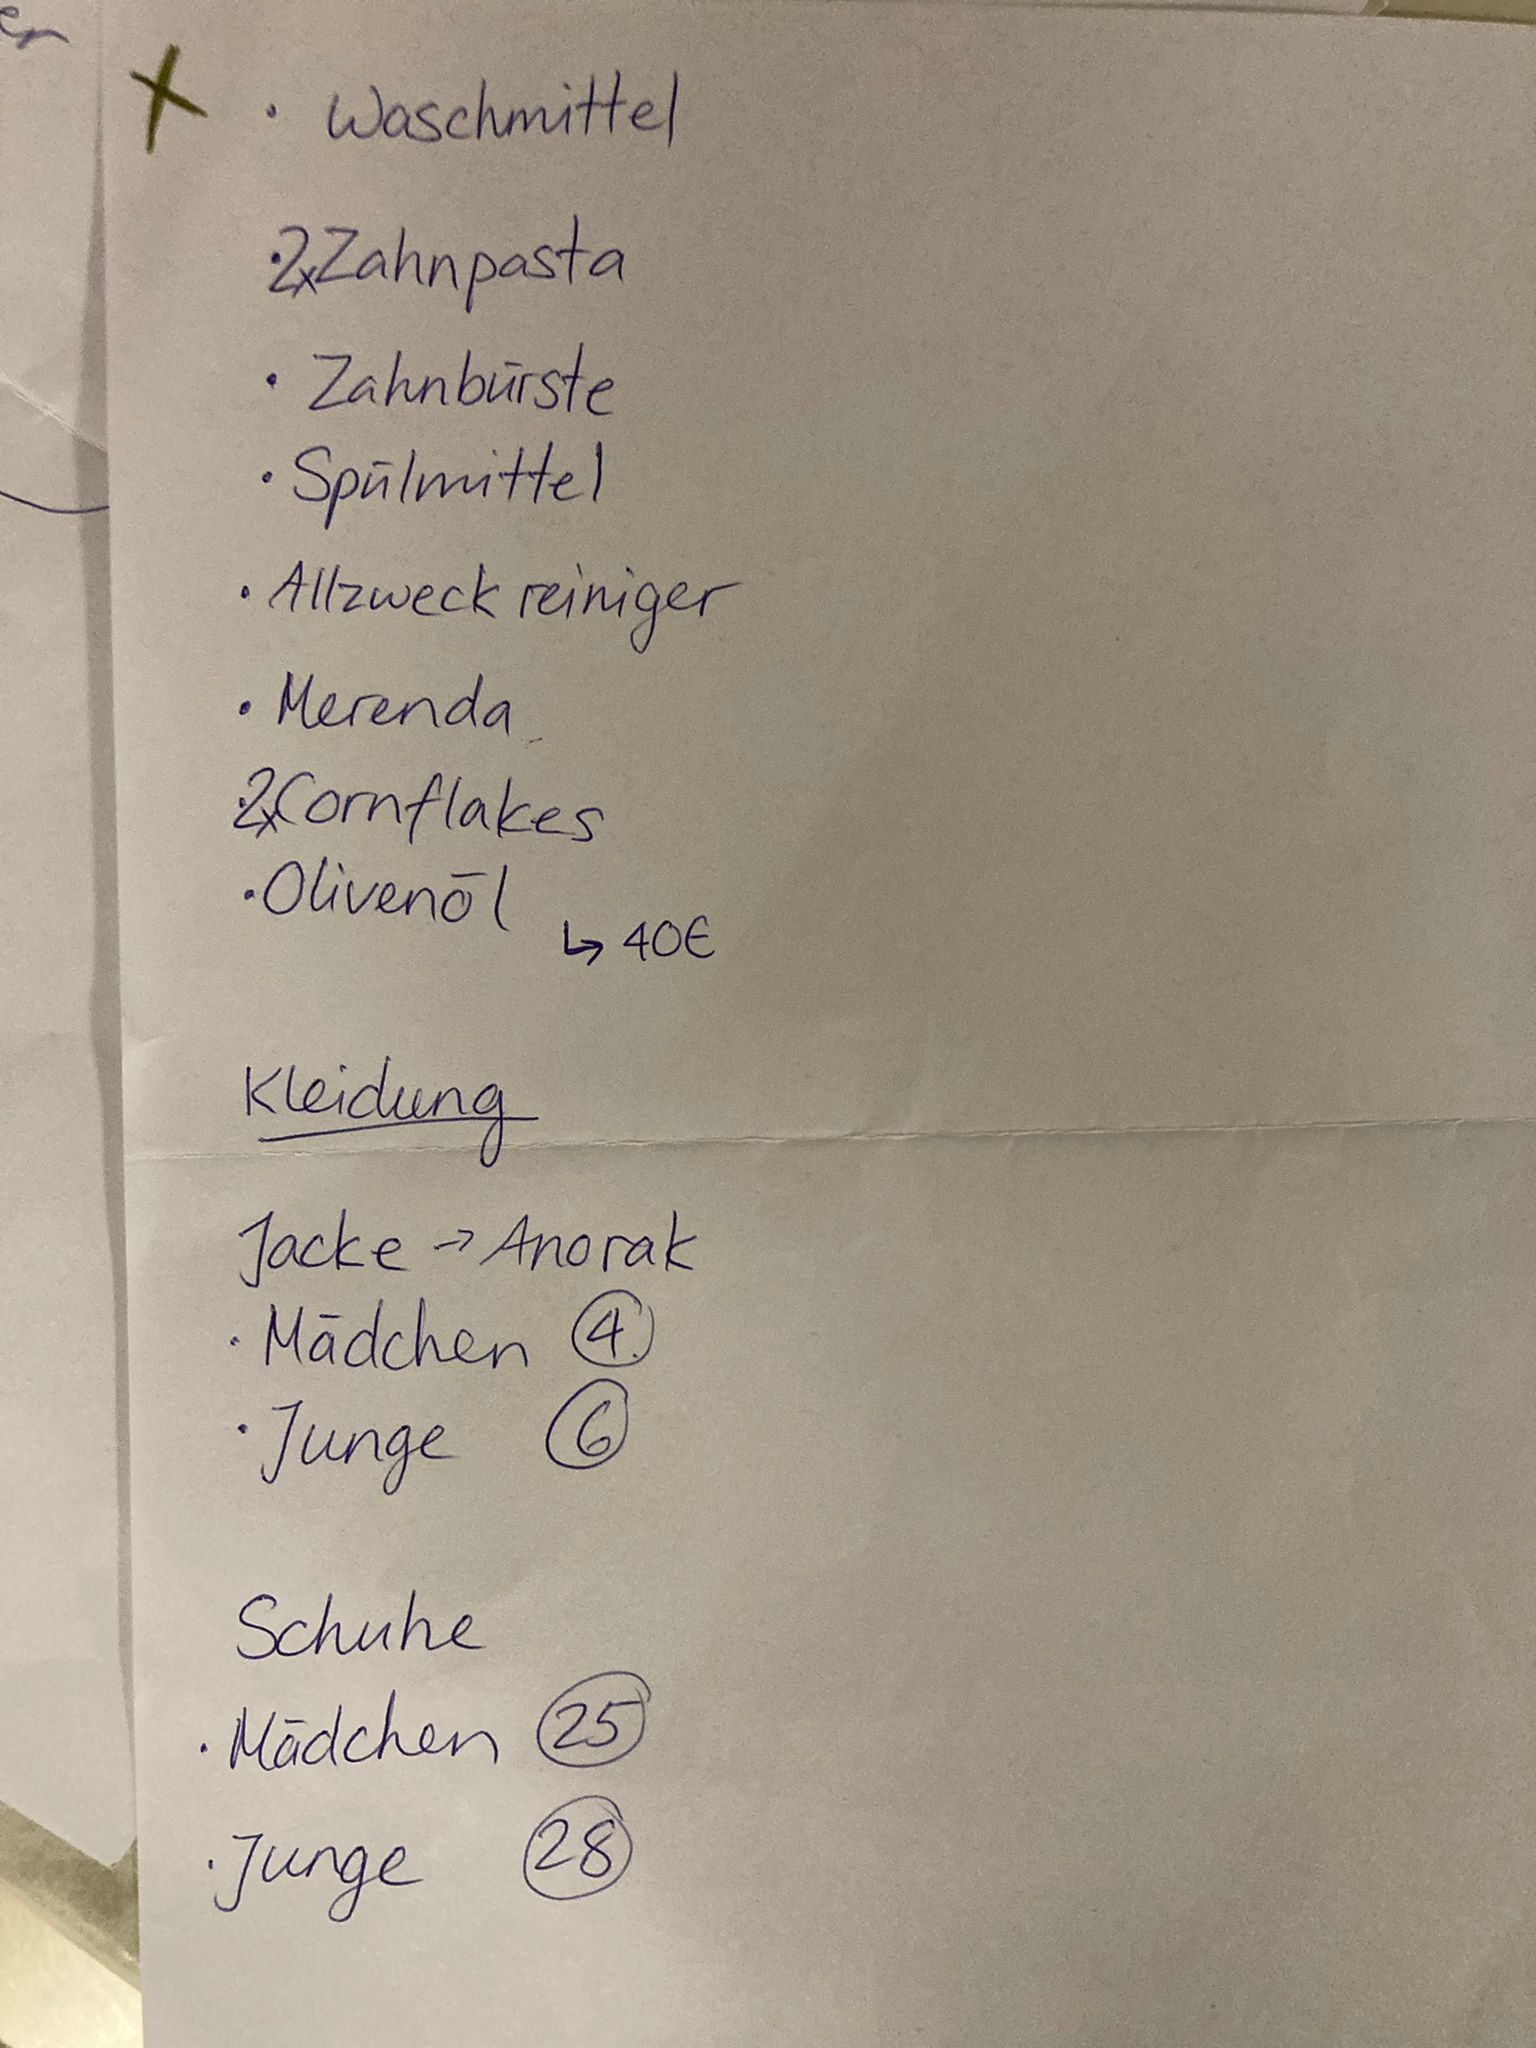 · Waschmittel
· 2x Zahnpasta
· Zahnbürste
· Spülmittel
· Allzweckreiniger
· Merenda
· 2x Cornflakes
· Olivenöl
↳ 40€
Kleidung
Jacke → Anorak
· Mädchen 4
· Junge 6
Schuhe
· Mädchen 25
· Junge 28